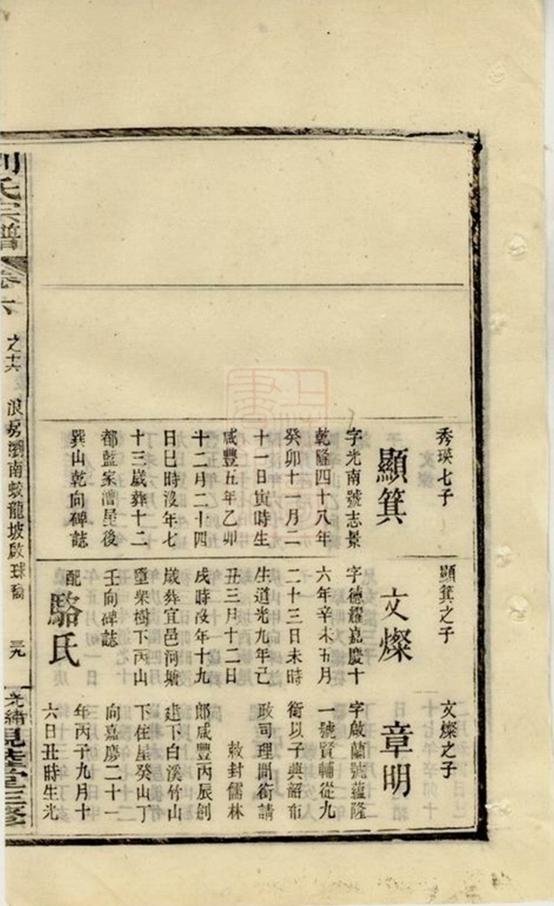 秀瑛七子
顯箕
字光南號志景
乾隆四十八年
癸卯十一月二
十一日寅時生
咸豐五年乙卯
十二月二十四
日巳時沒年七
十三歲葬十二
都藍家漕屋後
巽山乾向碑誌
顯箕之子
文燦
字德耀嘉慶十
六年辛未五月
二十三日未時
生道光九年己
丑三月十二日
戌時沒年十九
歲葬宜邑河塘
壟柴樹下丙山
壬向碑誌
配
駱氏
文燦之子
章明
字啟蘭號蘊隆
一號賢輔從九
銜以子典紹布
政司理問銜請
敕封儒林
郎咸豐丙辰創
建下白溪竹山
下住屋癸山丁
向嘉慶二十一
年丙子九月十
六日丑時生光
劉氏宗譜
卷六
之十六
浪房瀏南蛟龍坡啟球
三九
光緒
堂三修